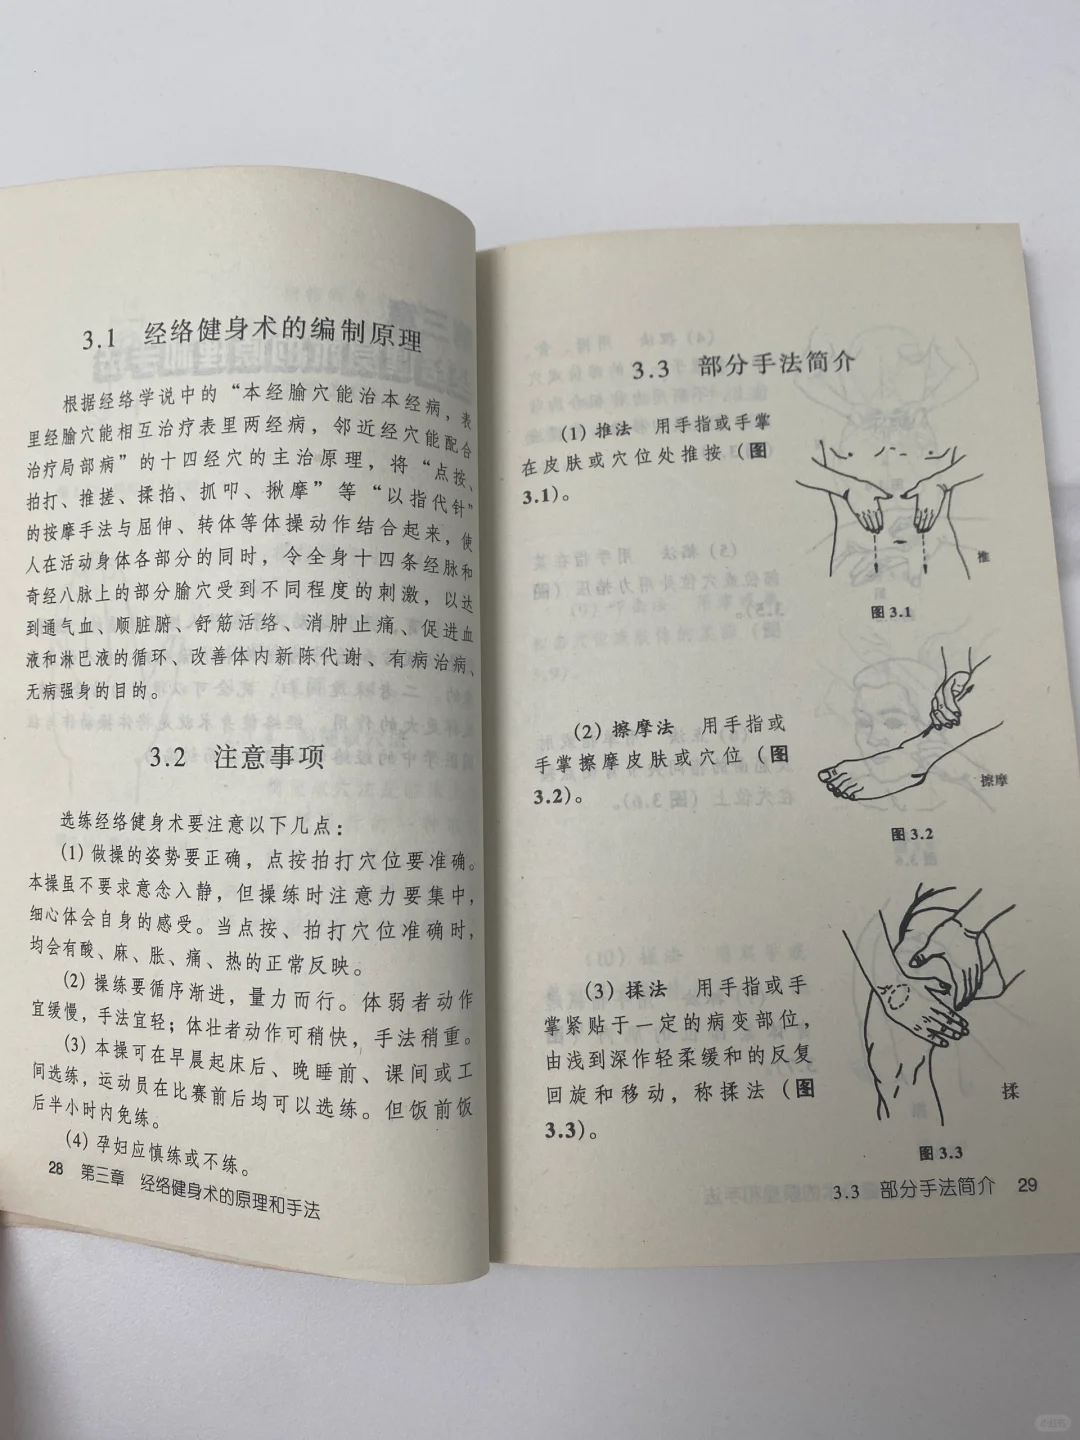 3.1 经络健身术的编制原理
根据经络学说中的“本经腧穴能治本经病，表
里经腧穴能相互治疗表里两经病，邻近经穴能配合
治疗局部病”的十四经穴的主治原理，将“点按、
拍打、推搓、揉掐、抓叩、揪摩”等“以指代针”
的按摩手法与屈伸、转体等体操动作结合起来，使
人在活动身体各部分的同时，令全身十四条经脉和
奇经八脉上的部分腧穴受到不同程度的刺激，以达
到通气血、顺脏腑、舒筋活络、消肿止痛、促进血
液和淋巴液的循环、改善体内新陈代谢、有病治病、
无病强身的目的。
3.2 注意事项
选练经络健身术要注意以下几点：
(1) 做操的姿势要正确，点按拍打穴位要准确。
本操虽不要求意念入静，但操练时注意力要集中，
细心体会自身的感受。当点按、拍打穴位准确时，
均会有酸、麻、胀、痛、热的正常反映。
(2) 操练要循序渐进，量力而行。体弱者动作
宜缓慢，手法宜轻；体壮者动作可稍快，手法稍重。
(3) 本操可在早晨起床后、晚睡前、课间或工
间选练，运动员在比赛前后均可以选练。但饭前饭
后半小时内免练。
(4) 孕妇应慎练或不练。
28 第三章 经络健身术的原理和手法
3.3 部分手法简介
(1) 推法 用手指或手掌
在皮肤或穴位处推按（图
3.1）。
推
图 3.1
(2) 擦摩法 用手指或
手掌擦摩皮肤或穴位（图
3.2）。
擦摩
图 3.2
(3) 揉法 用手指或手
掌紧贴于一定的病变部位，
由浅到深作轻柔缓和的反复
回旋和移动，称揉法（图
3.3）。
揉
图 3.3
3.3 部分手法简介 29